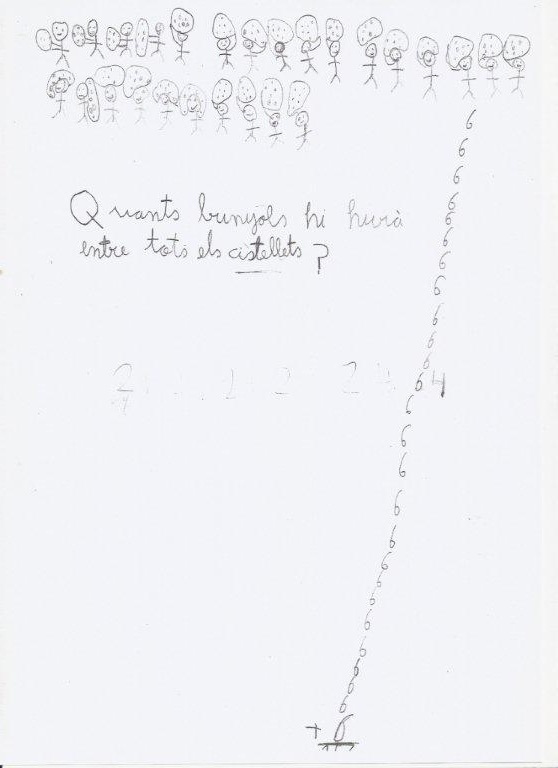 Quants bunyols hi haurà
entre tots els cistellets?
6
6
6
6
6
6
6
6
6
6
6
6 4
6
6
6
6
6
6
6
6
6
6
6
6
6
+ 6